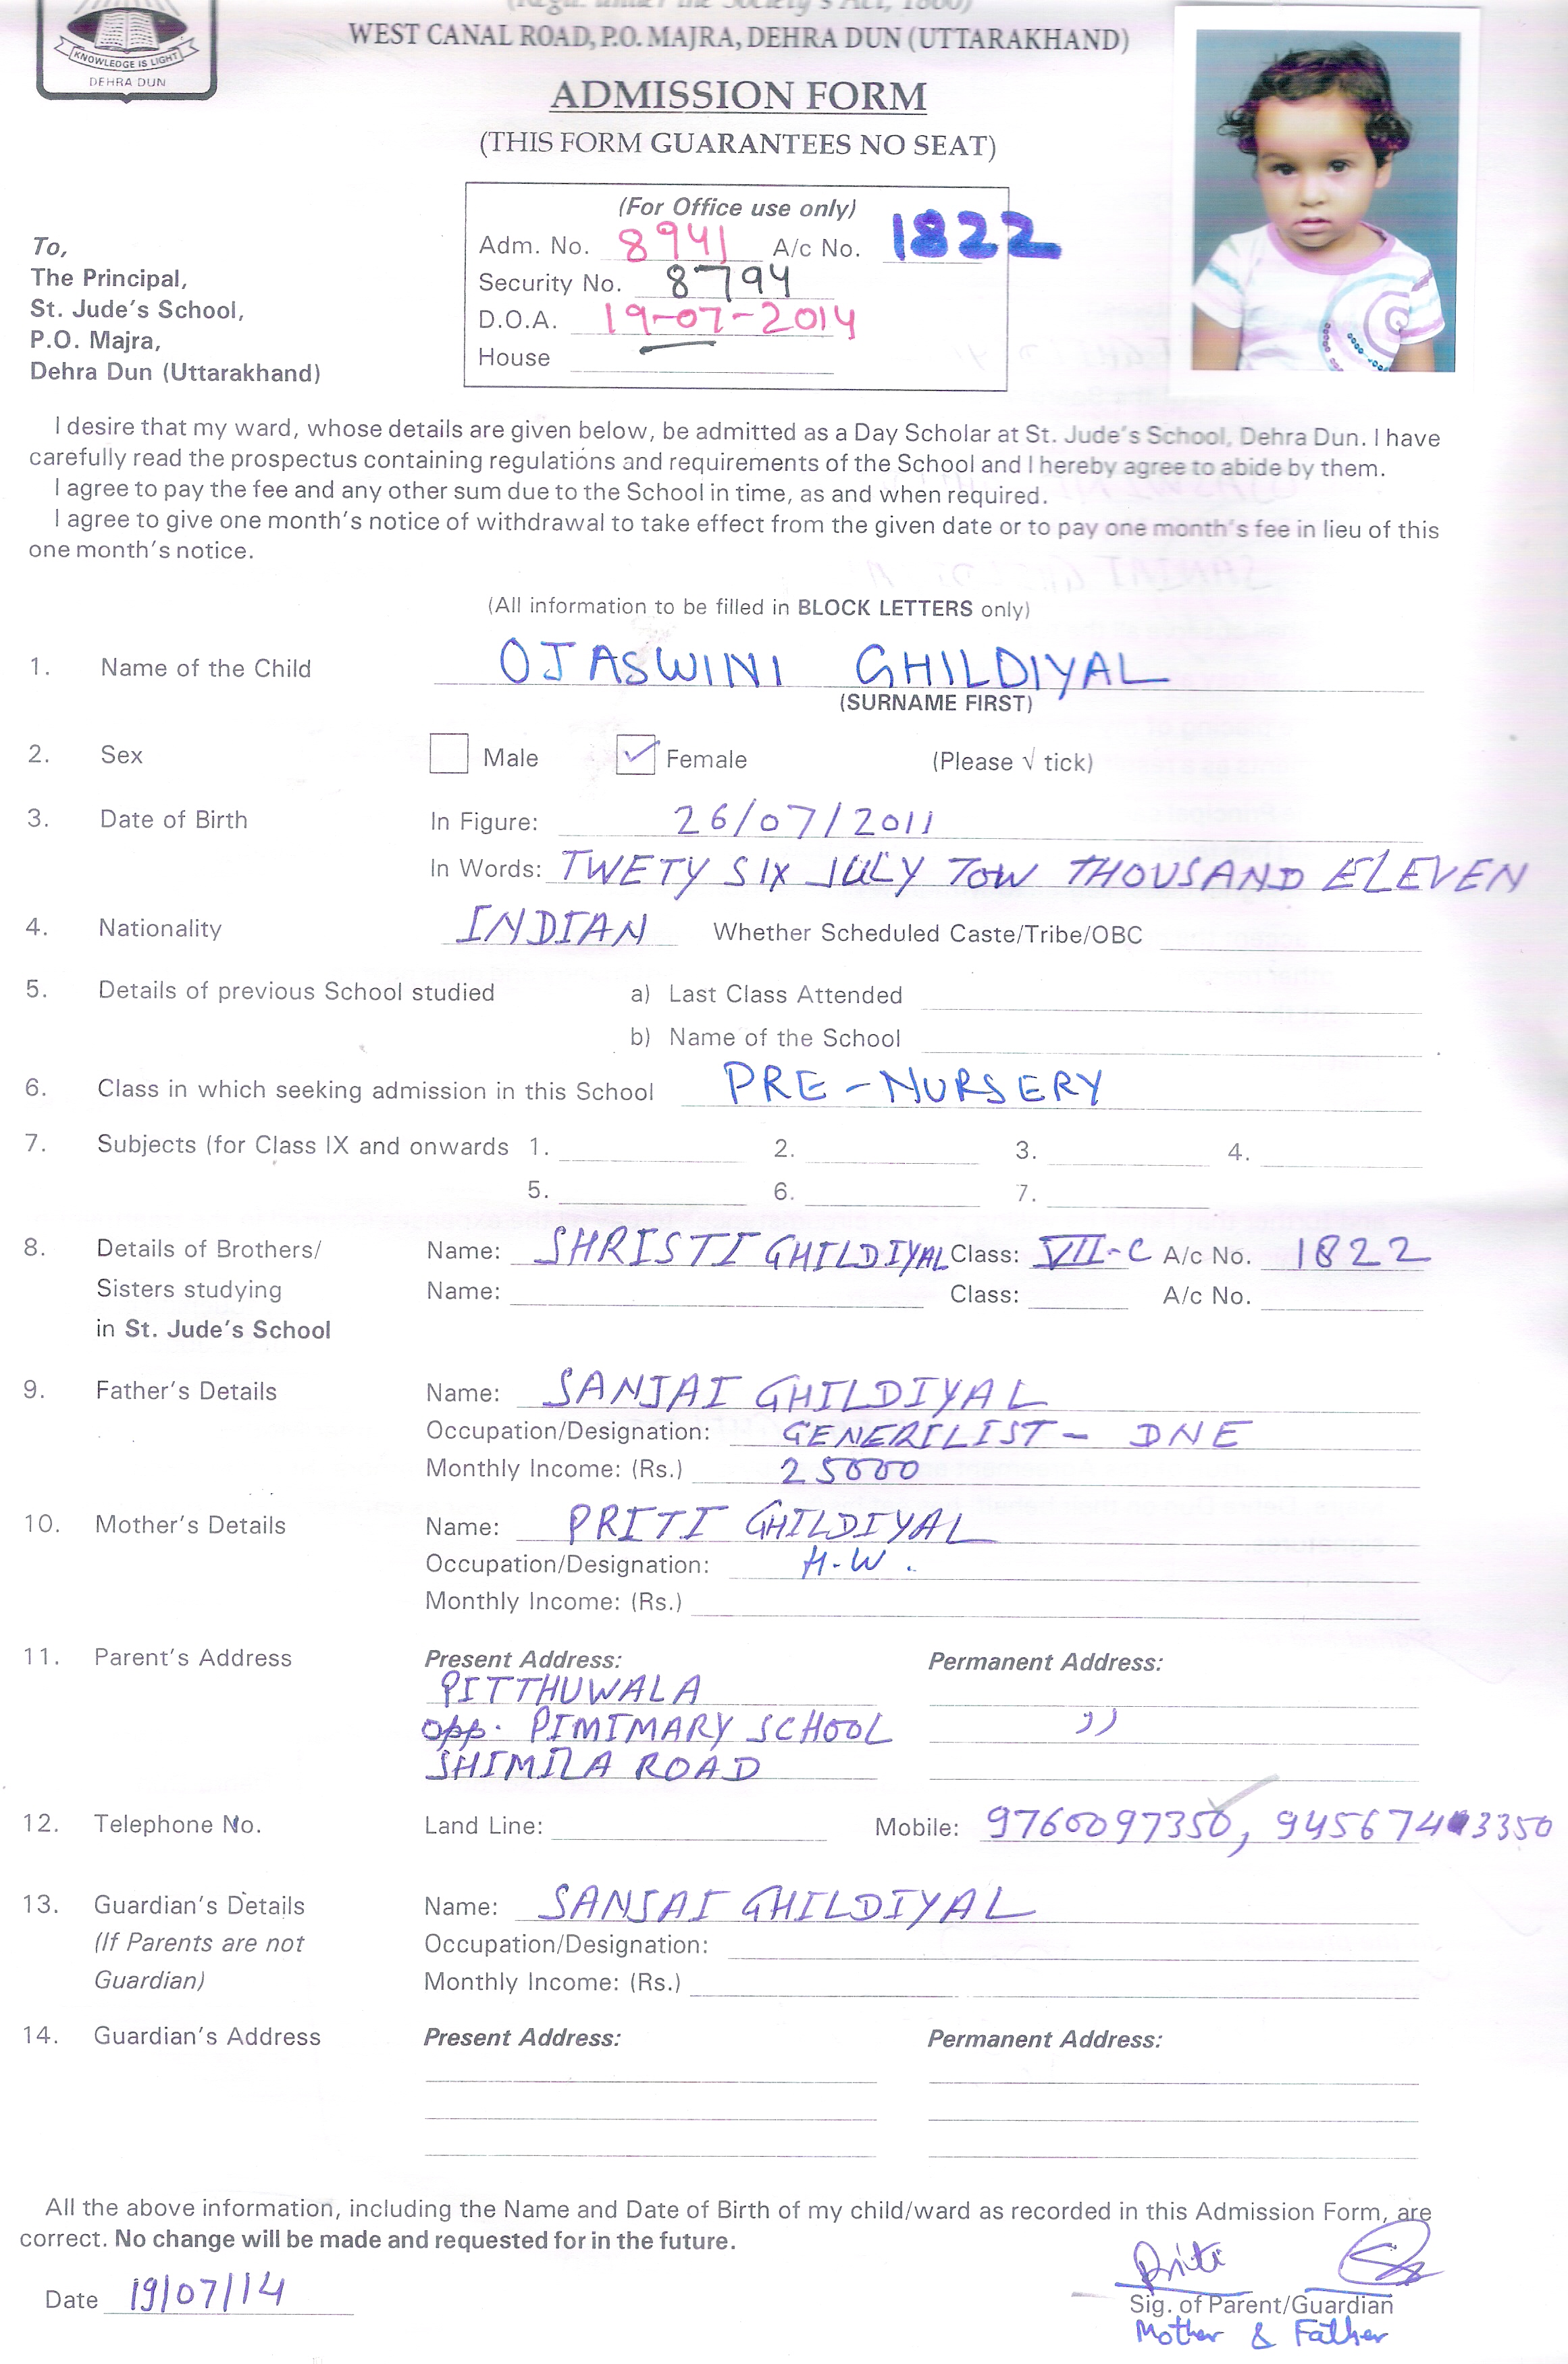 (Regd. under the Society's Act, 1860)
WEST CANAL ROAD, P.O. MAJRA, DEHRA DUN (UTTARAKHAND)
KNOWLEDGE IS LIGHT
DEHRA DUN
ADMISSION FORM
(THIS FORM GUARANTEES NO SEAT)
(For Office use only)
Adm. No. 8941 A/c No. 1822
Security No. 8794
D.O.A. 19-07-2014
House
To,
The Principal,
St. Jude's School,
P.O. Majra,
Dehra Dun (Uttarakhand)
I desire that my ward, whose details are given below, be admitted as a Day Scholar at St. Jude's School, Dehra Dun. I have
carefully read the prospectus containing regulations and requirements of the School and I hereby agree to abide by them.
I agree to pay the fee and any other sum due to the School in time, as and when required.
I agree to give one month's notice of withdrawal to take effect from the given date or to pay one month's fee in lieu of this
one month's notice.
(All information to be filled in BLOCK LETTERS only)
1. Name of the Child OJASWINI GHILDIYAL
(SURNAME FIRST)
2. Sex Male ✓ Female (Please √ tick)
3. Date of Birth In Figure: 26/07/2011
In Words: TWETY SIX JULY TOW THOUSAND ELEVEN
4. Nationality INDIAN Whether Scheduled Caste/Tribe/OBC
5. Details of previous School studied a) Last Class Attended
b) Name of the School
6. Class in which seeking admission in this School PRE-NURSERY
7. Subjects (for Class IX and onwards 1. 2. 3. 4.
5. 6. 7.
8. Details of Brothers/ Name: SHRISTI GHILDIYAL Class: VII-C A/c No. 1822
Sisters studying Name: Class: A/c No.
in St. Jude's School
9. Father's Details Name: SANJAI GHILDIYAL
Occupation/Designation: GENERILIST - DNE
Monthly Income: (Rs.) 25000
10. Mother's Details Name: PRITI GHILDIYAL
Occupation/Designation: H.W.
Monthly Income: (Rs.)
11. Parent's Address Present Address: Permanent Address:
PITTHUWALA
opp. PIMIMARY SCHOOL ,,
SHIMLA ROAD
12. Telephone No. Land Line: Mobile: 9760097350, 9456743350
13. Guardian's Details Name: SANJAI GHILDIYAL
(If Parents are not Occupation/Designation:
Guardian) Monthly Income: (Rs.)
14. Guardian's Address Present Address: Permanent Address:
All the above information, including the Name and Date of Birth of my child/ward as recorded in this Admission Form, are
correct. No change will be made and requested for in the future.
Priti
Date 19/07/14
Sig. of Parent/Guardian
Mother & Father